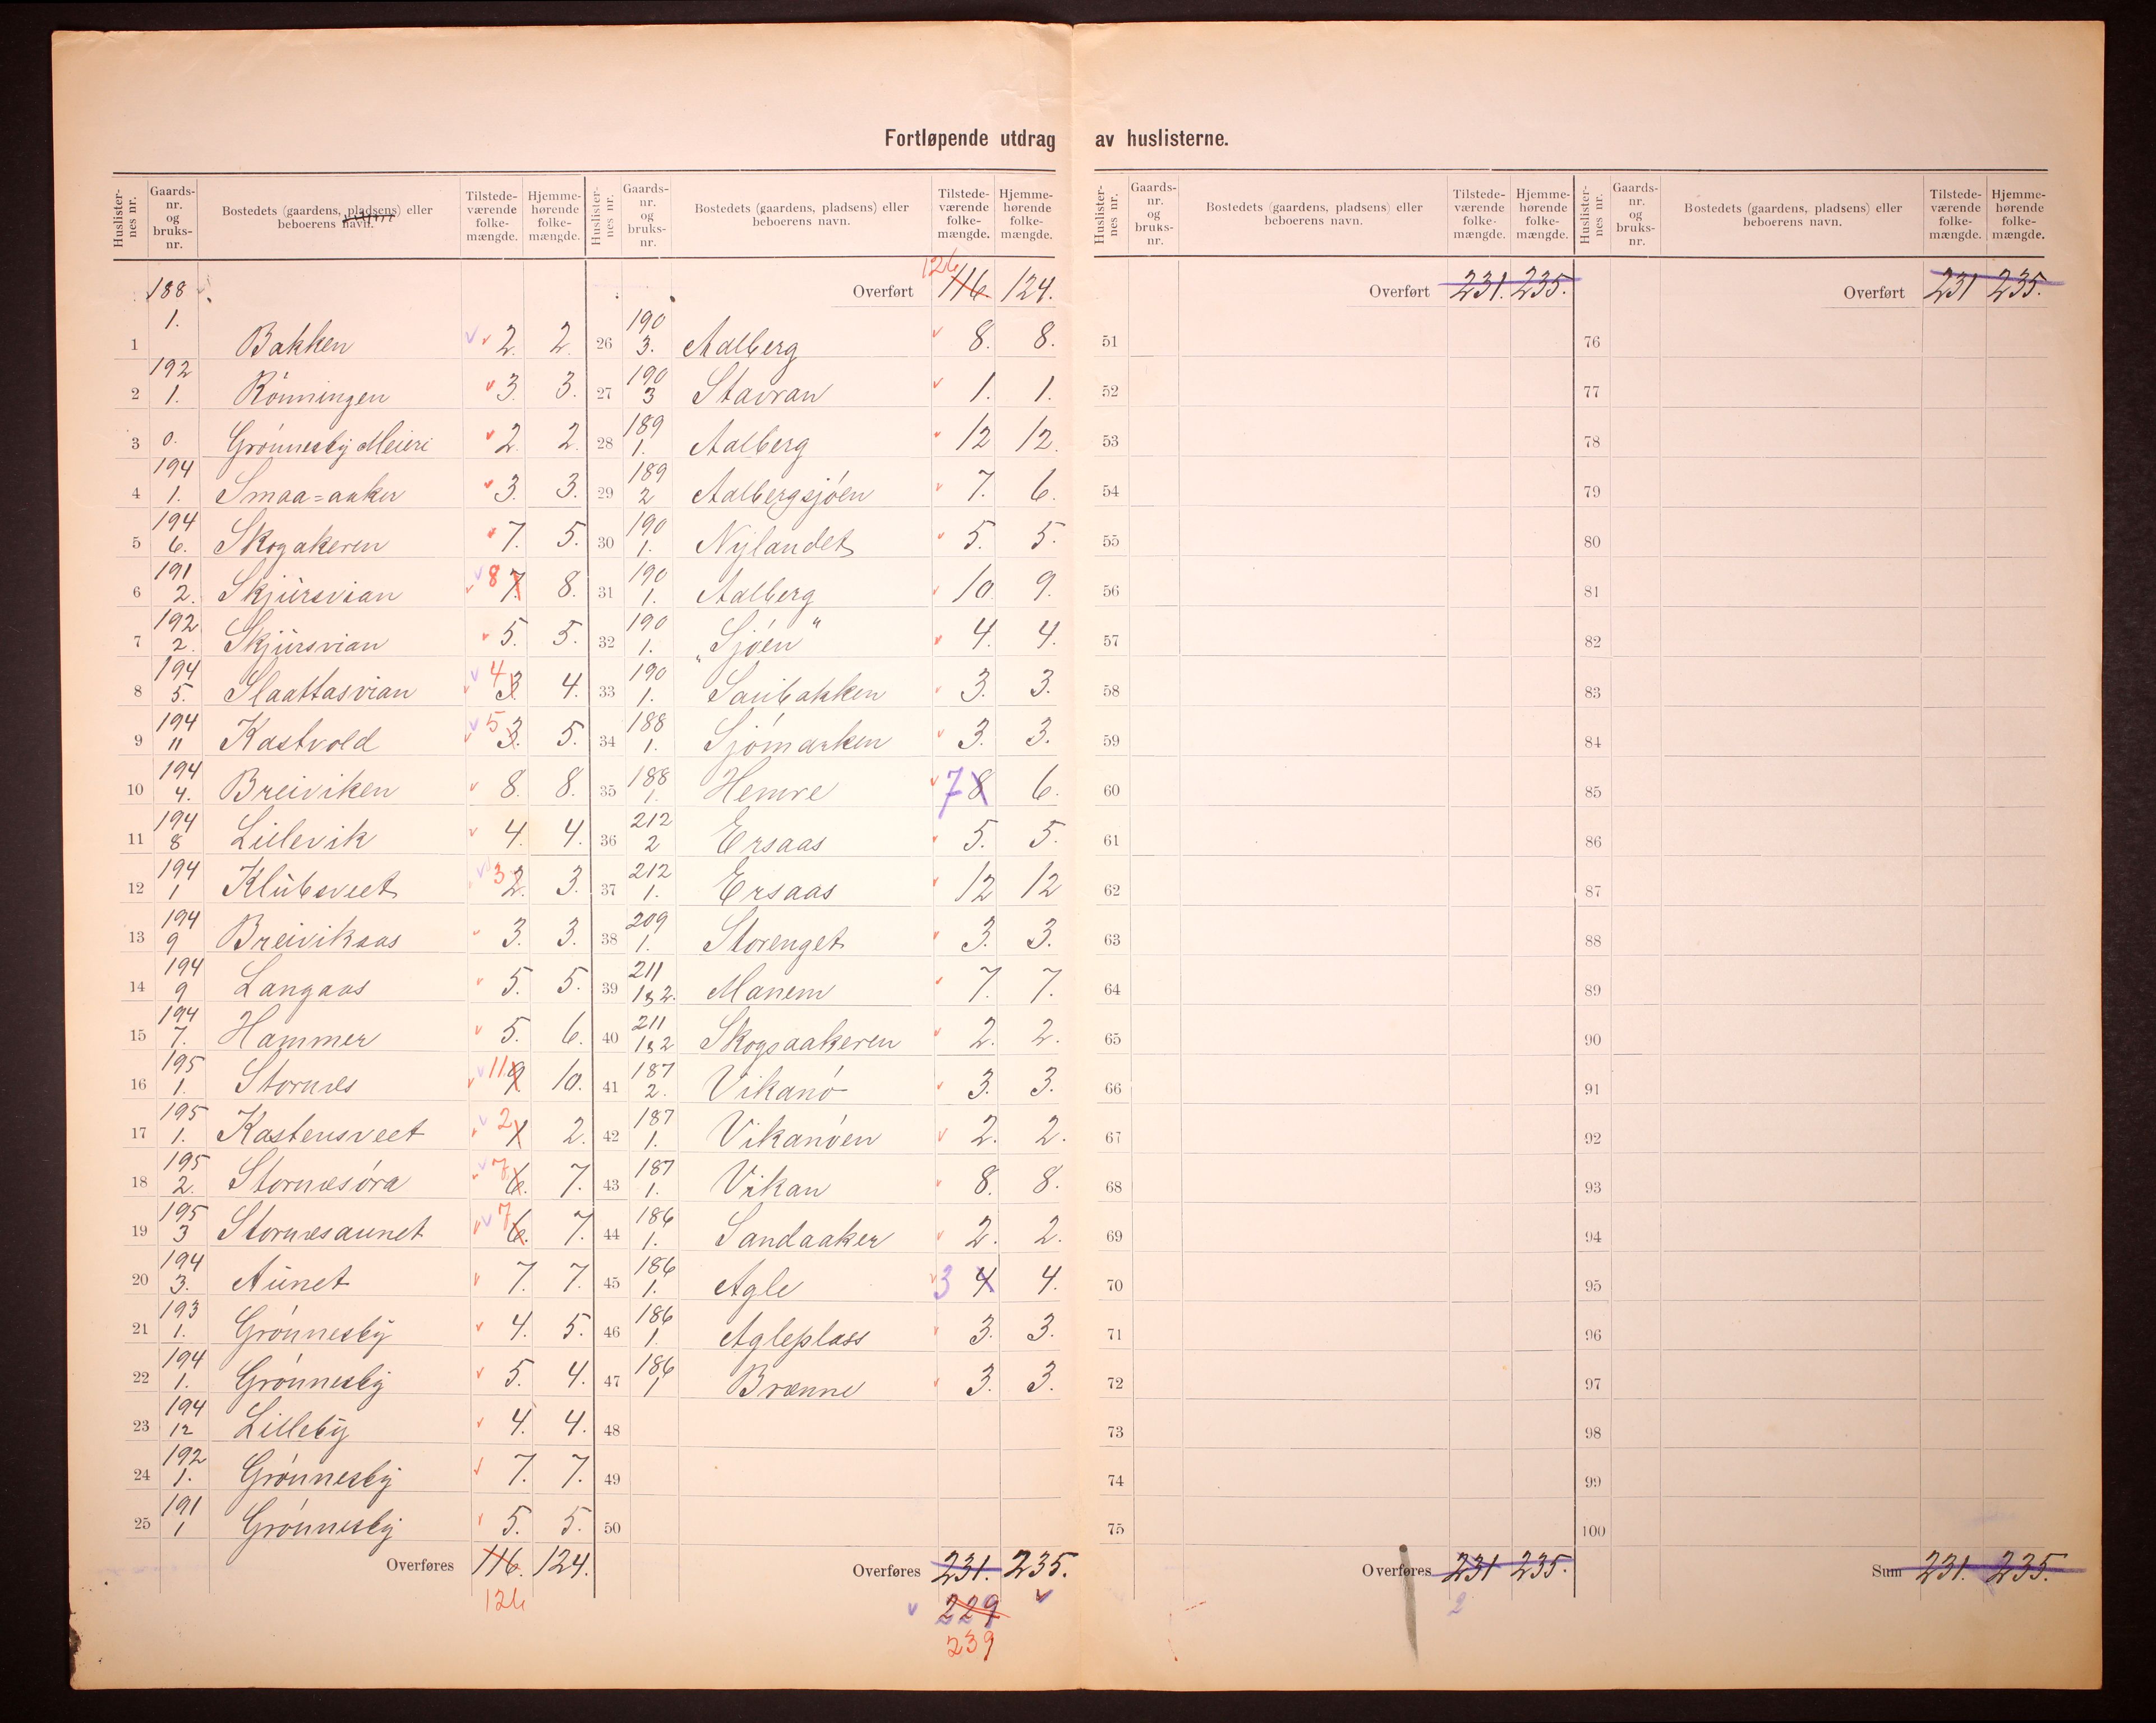 Fortløpende utdrag av huslisterne.
Huslisternes nr. Gaards-nr. og bruks-nr. Bostedets (gaardens, pladsens) eller beboerens navn. Tilstedeværende folkemængde. Hjemmehørende folkemængde.
Huslisternes nr. Gaards-nr. og bruks-nr. Bostedets (gaardens, pladsens) eller beboerens navn. Tilstedeværende folkemængde. Hjemmehørende folkemængde.
1 188 1. Bakken 2. 2.
2 192 1. Rönningen 3. 3.
3 0. Grönnesby Meieri 2. 2.
4 194 1. Smaa=aaker 3. 3.
5 194 6. Skogakeren 7. 5.
6 191 2. Skjürsvian 8 7. 8.
7 192 2. Skjürsvian 5. 5.
8 194 5. Slaattasvian 4 3. 4.
9 194 11 Kastvold 5 3. 5.
10 194 4. Breiviken 8. 8.
11 194 8 Lillevik 4. 4.
12 194 1 Klübsveet 3 2. 3.
13 194 9 Breiviksaas 3. 3.
14 194 9 Langaas 5. 5.
15 194 7. Hammer 5. 6.
16 195 1. Stornes 11 9 10.
17 195 1. Kastensveet 2 1 2.
18 195 2. Stornesöra 7 6. 7.
19 195 3 Stornesaunet 7 6. 7.
20 194 3. Aünet 7. 7.
21 193 1. Grönnesby 4. 5.
22 194 1. Grönnesby 5. 4.
23 194 12 Lilleby 4. 4.
24 192 1. Grönnesby 7. 7.
25 191 1 Grönnesby 5. 5.
Overføres 116. 124.
126
Overført 126 116 124.
26 190 3. Aalberg 8. 8.
27 190 3 Stavran 1. 1.
28 189 1. Aalberg 12 12.
29 189 2 Aalbergsjöen 7. 6.
30 190 1. Nylandet 5. 5.
31 190 1. Aalberg 10 9.
32 190 1. "Sjöen" 4. 4.
33 190 1. Saubakken 3. 3.
34 188 1. Sjömarken 3. 3.
35 188 1. Hemre 7 8 6.
36 212 2 Ersaas 5. 5.
37 212 1. Ersaas 12 12
38 209 1. Storenget 3. 3.
39 211 1 & 2. Manem 7. 7.
40 211 1 & 2 Skogsaakeren 2. 2.
41 187 2. Vikanö 3. 3.
42 187 1. Vikanöen 2. 2.
43 187 1. Vikan 8. 8.
44 186 1. Sandaaker 2. 2.
45 186 1. Agle 3 4 4.
46 186 1. Agleplass 3. 3.
47 186 1 Brenne 3. 3.
48
49
50
Overføres 231. 235.
229
239
Huslisternes nr. Gaards-nr. og bruks-nr. Bostedets (gaardens, pladsens) eller beboerens navn. Tilstedeværende folkemængde. Hjemmehørende folkemængde.
Huslisternes nr. Gaards-nr. og bruks-nr. Bostedets (gaardens, pladsens) eller beboerens navn. Tilstedeværende folkemængde. Hjemmehørende folkemængde.
Overført 231. 235.
51
52
53
54
55
56
57
58
59
60
61
62
63
64
65
66
67
68
69
70
71
72
73
74
75
Overføres 231 235.
2
Overført 231 235.
76
77
78
79
80
81
82
83
84
85
86
87
88
89
90
91
92
93
94
95
96
97
98
99
100
Sum 231. 235.